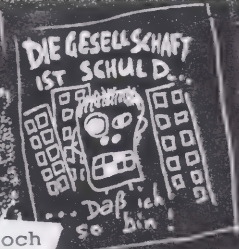 DIE GESELLSCHAFT
IST SCHULD...
... Daß ich
so bin!
och